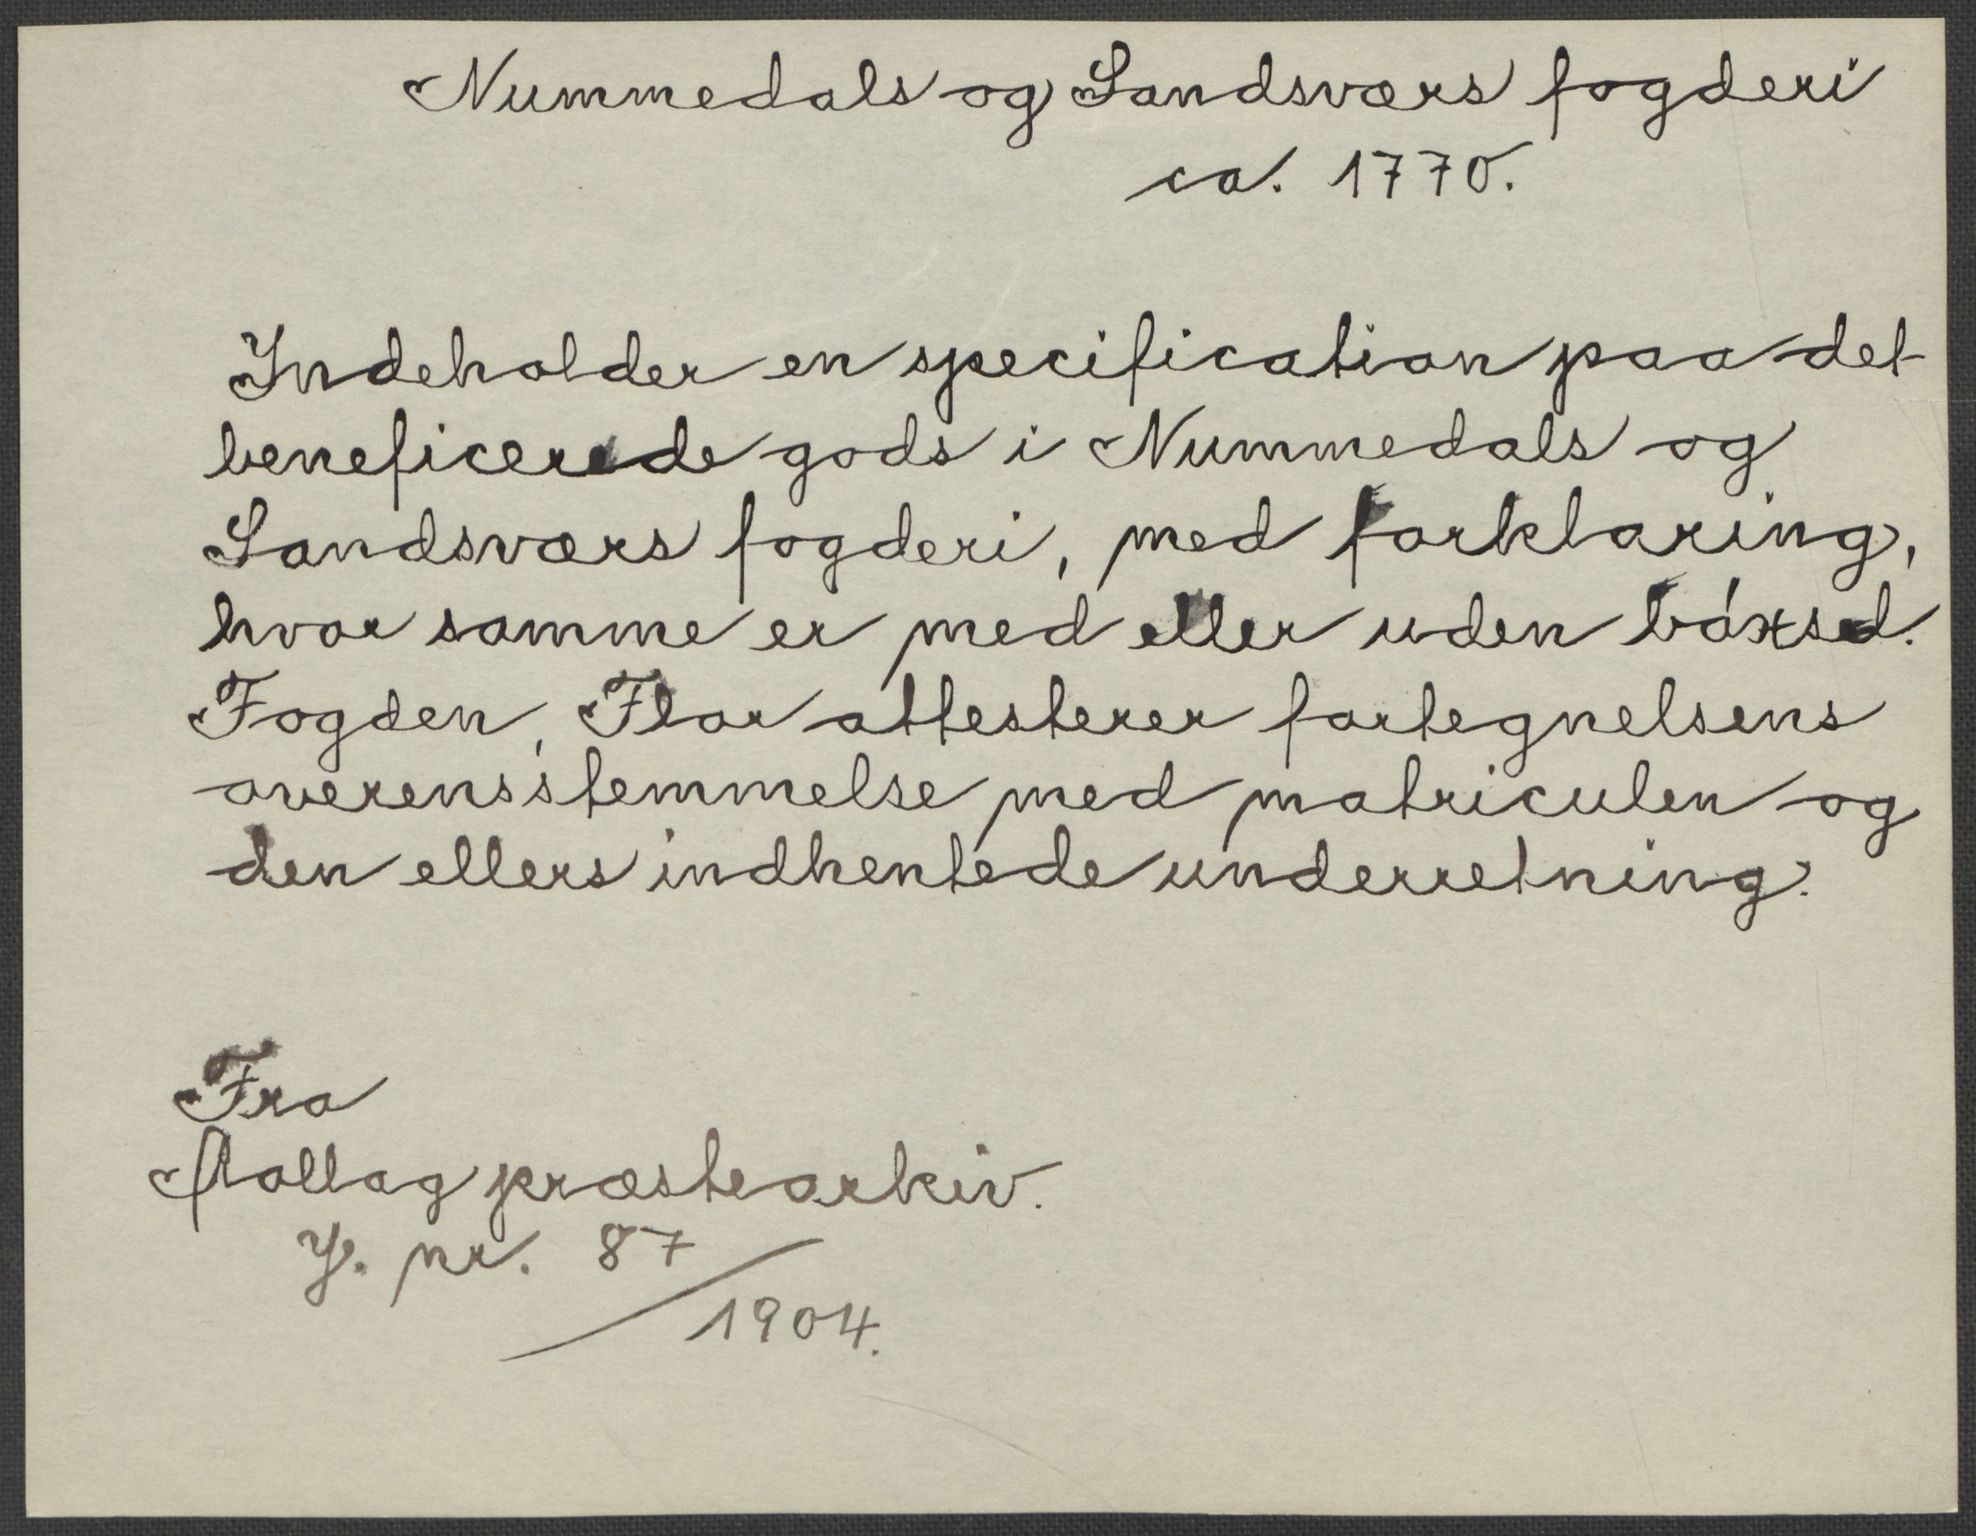 Nummedals og Sandsværs fogderi
ca. 1770.
Indeholder en specification paa det
beneficerede gods i Nummedals og
Sandsværs fogderi, med forklaring,
hvor samme er med eller uden bóxsel.
Fogden, Flor attesterer fortegnelsens
overensstemmelse med matriculen og
den ellers indhentede underretning.
Fra
Rollag præstearkiv.
J. nr. 87/1904.